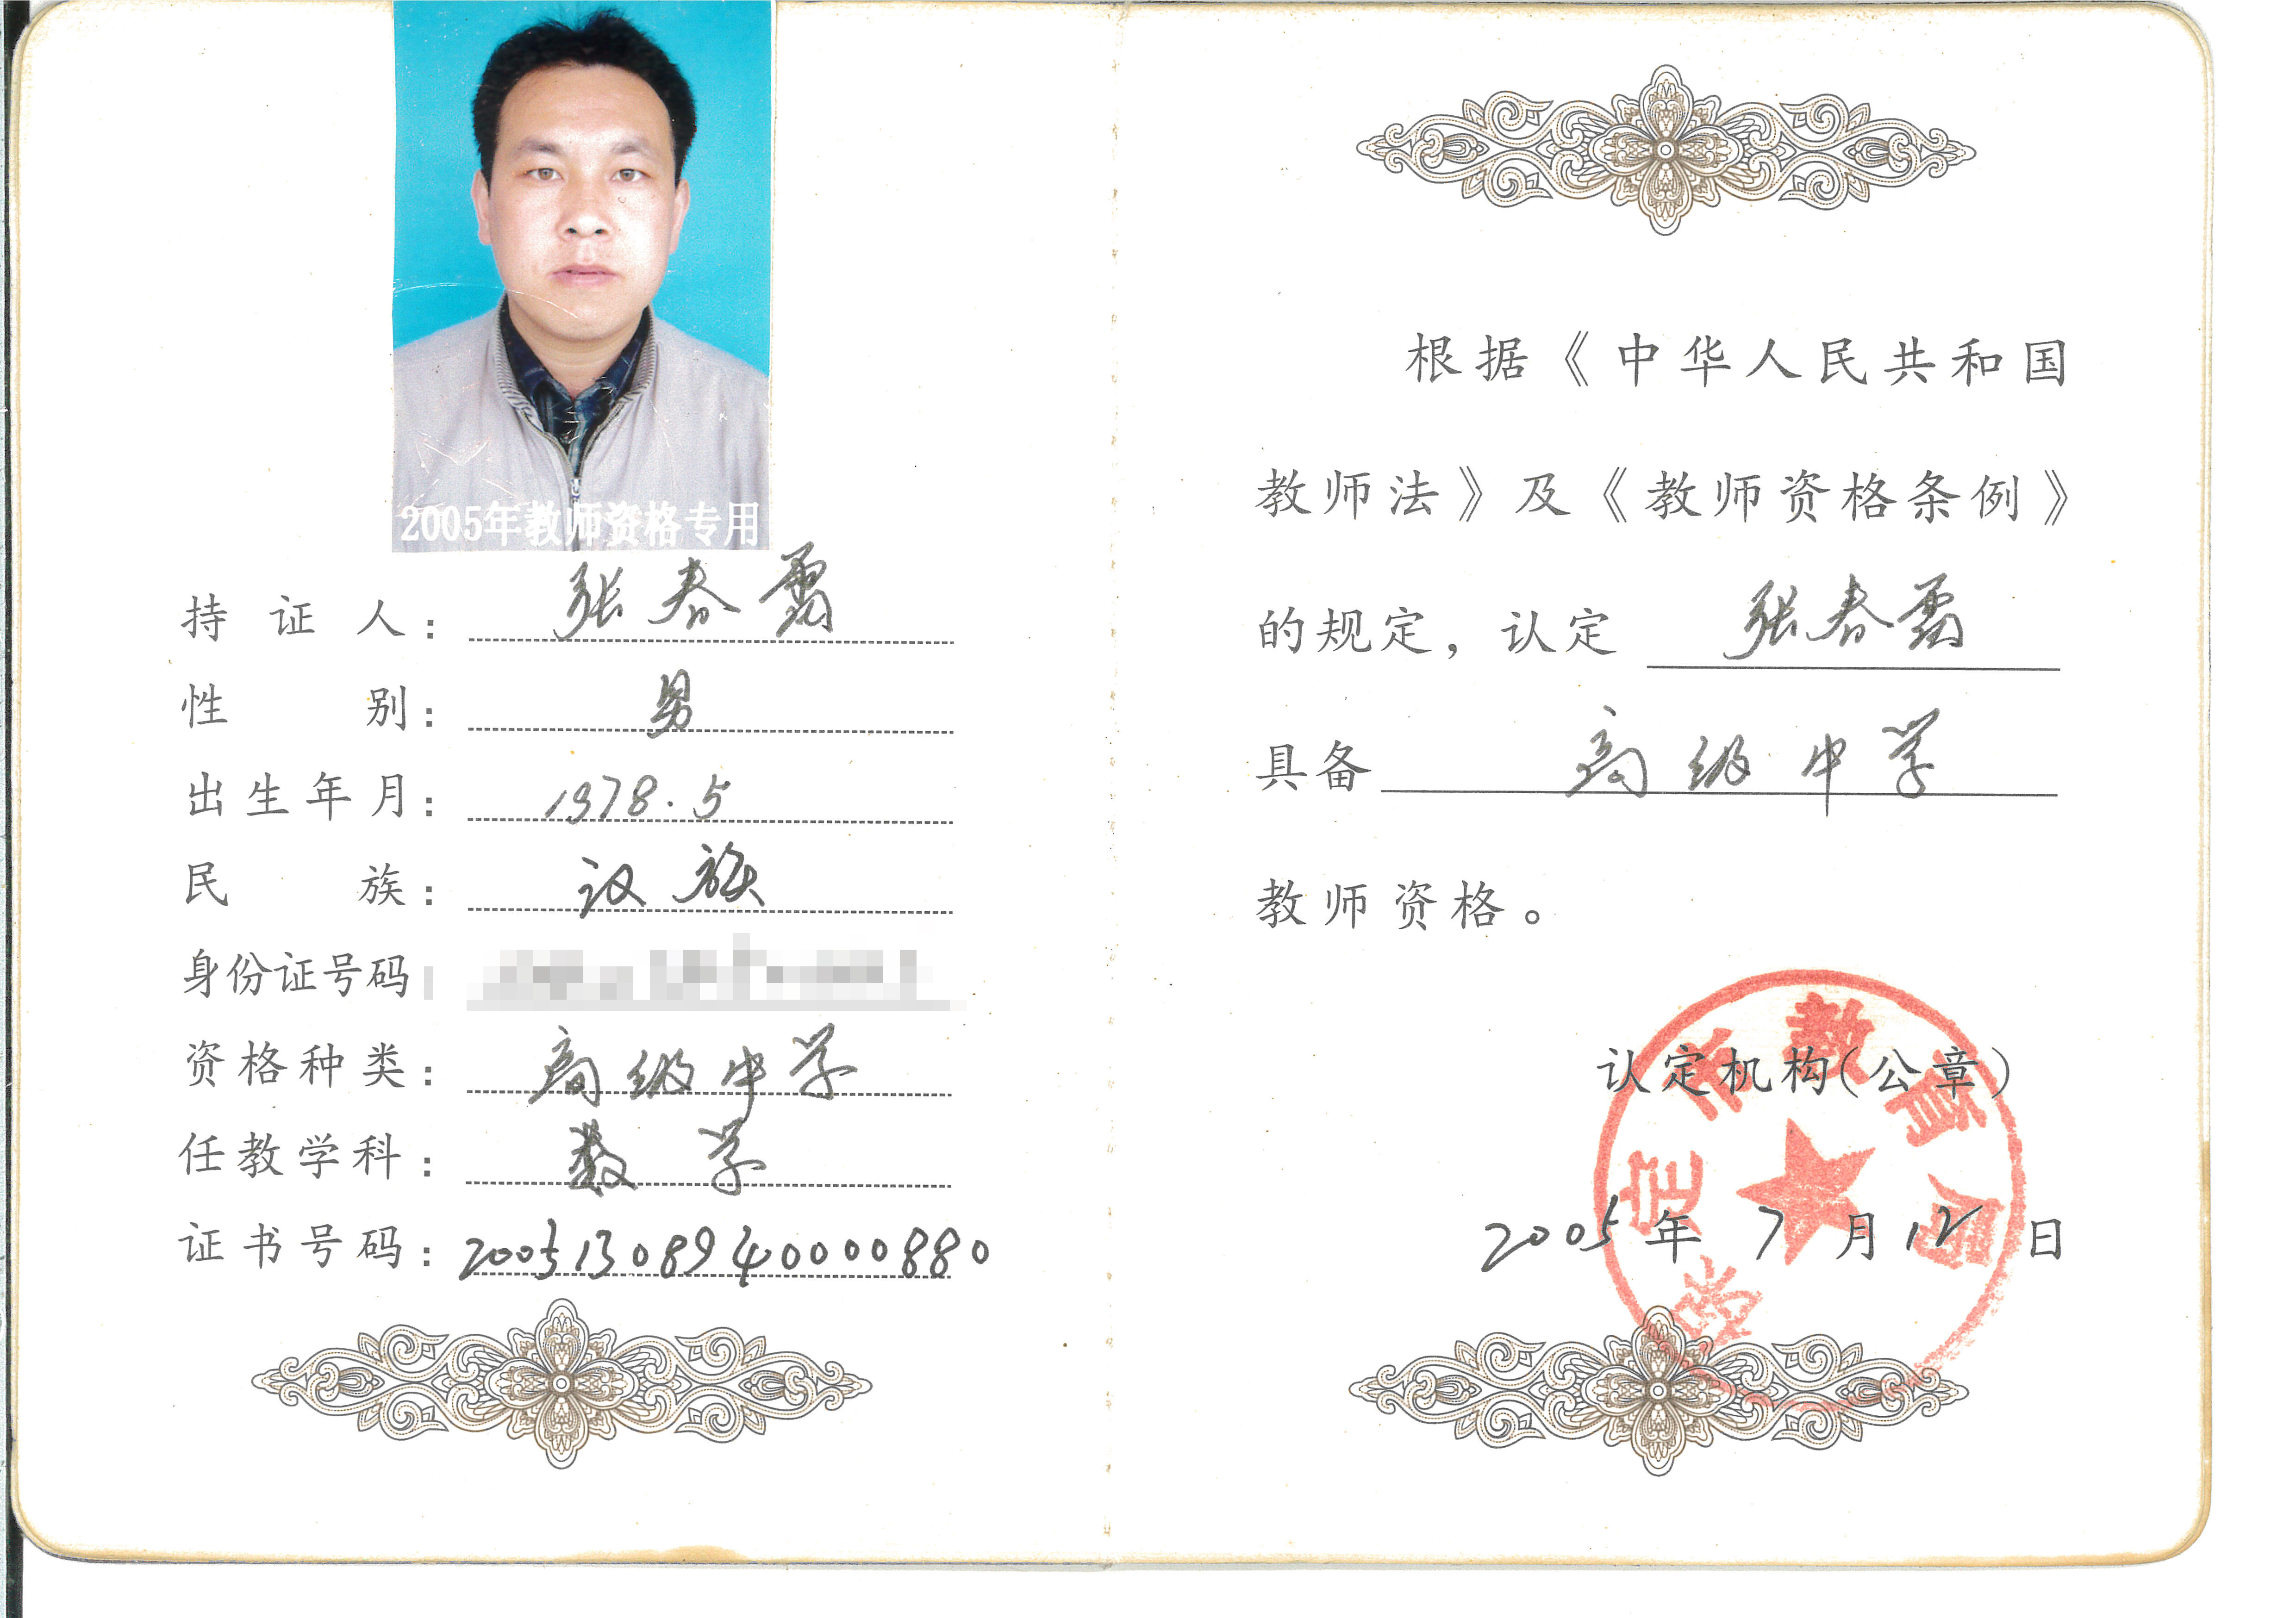 2005年教师资格专用
持证人：张春雷
性别：男
出生年月：1978.5
民族：汉族
身份证号码：
资格种类：高级中学
任教学科：数学
证书号码：20051308940000880
根据《中华人民共和国
教师法》及《教师资格条例》
的规定，认定 张春雷
具备 高级中学
教师资格。
认定机构(公章)
市教育局
2005年7月12日